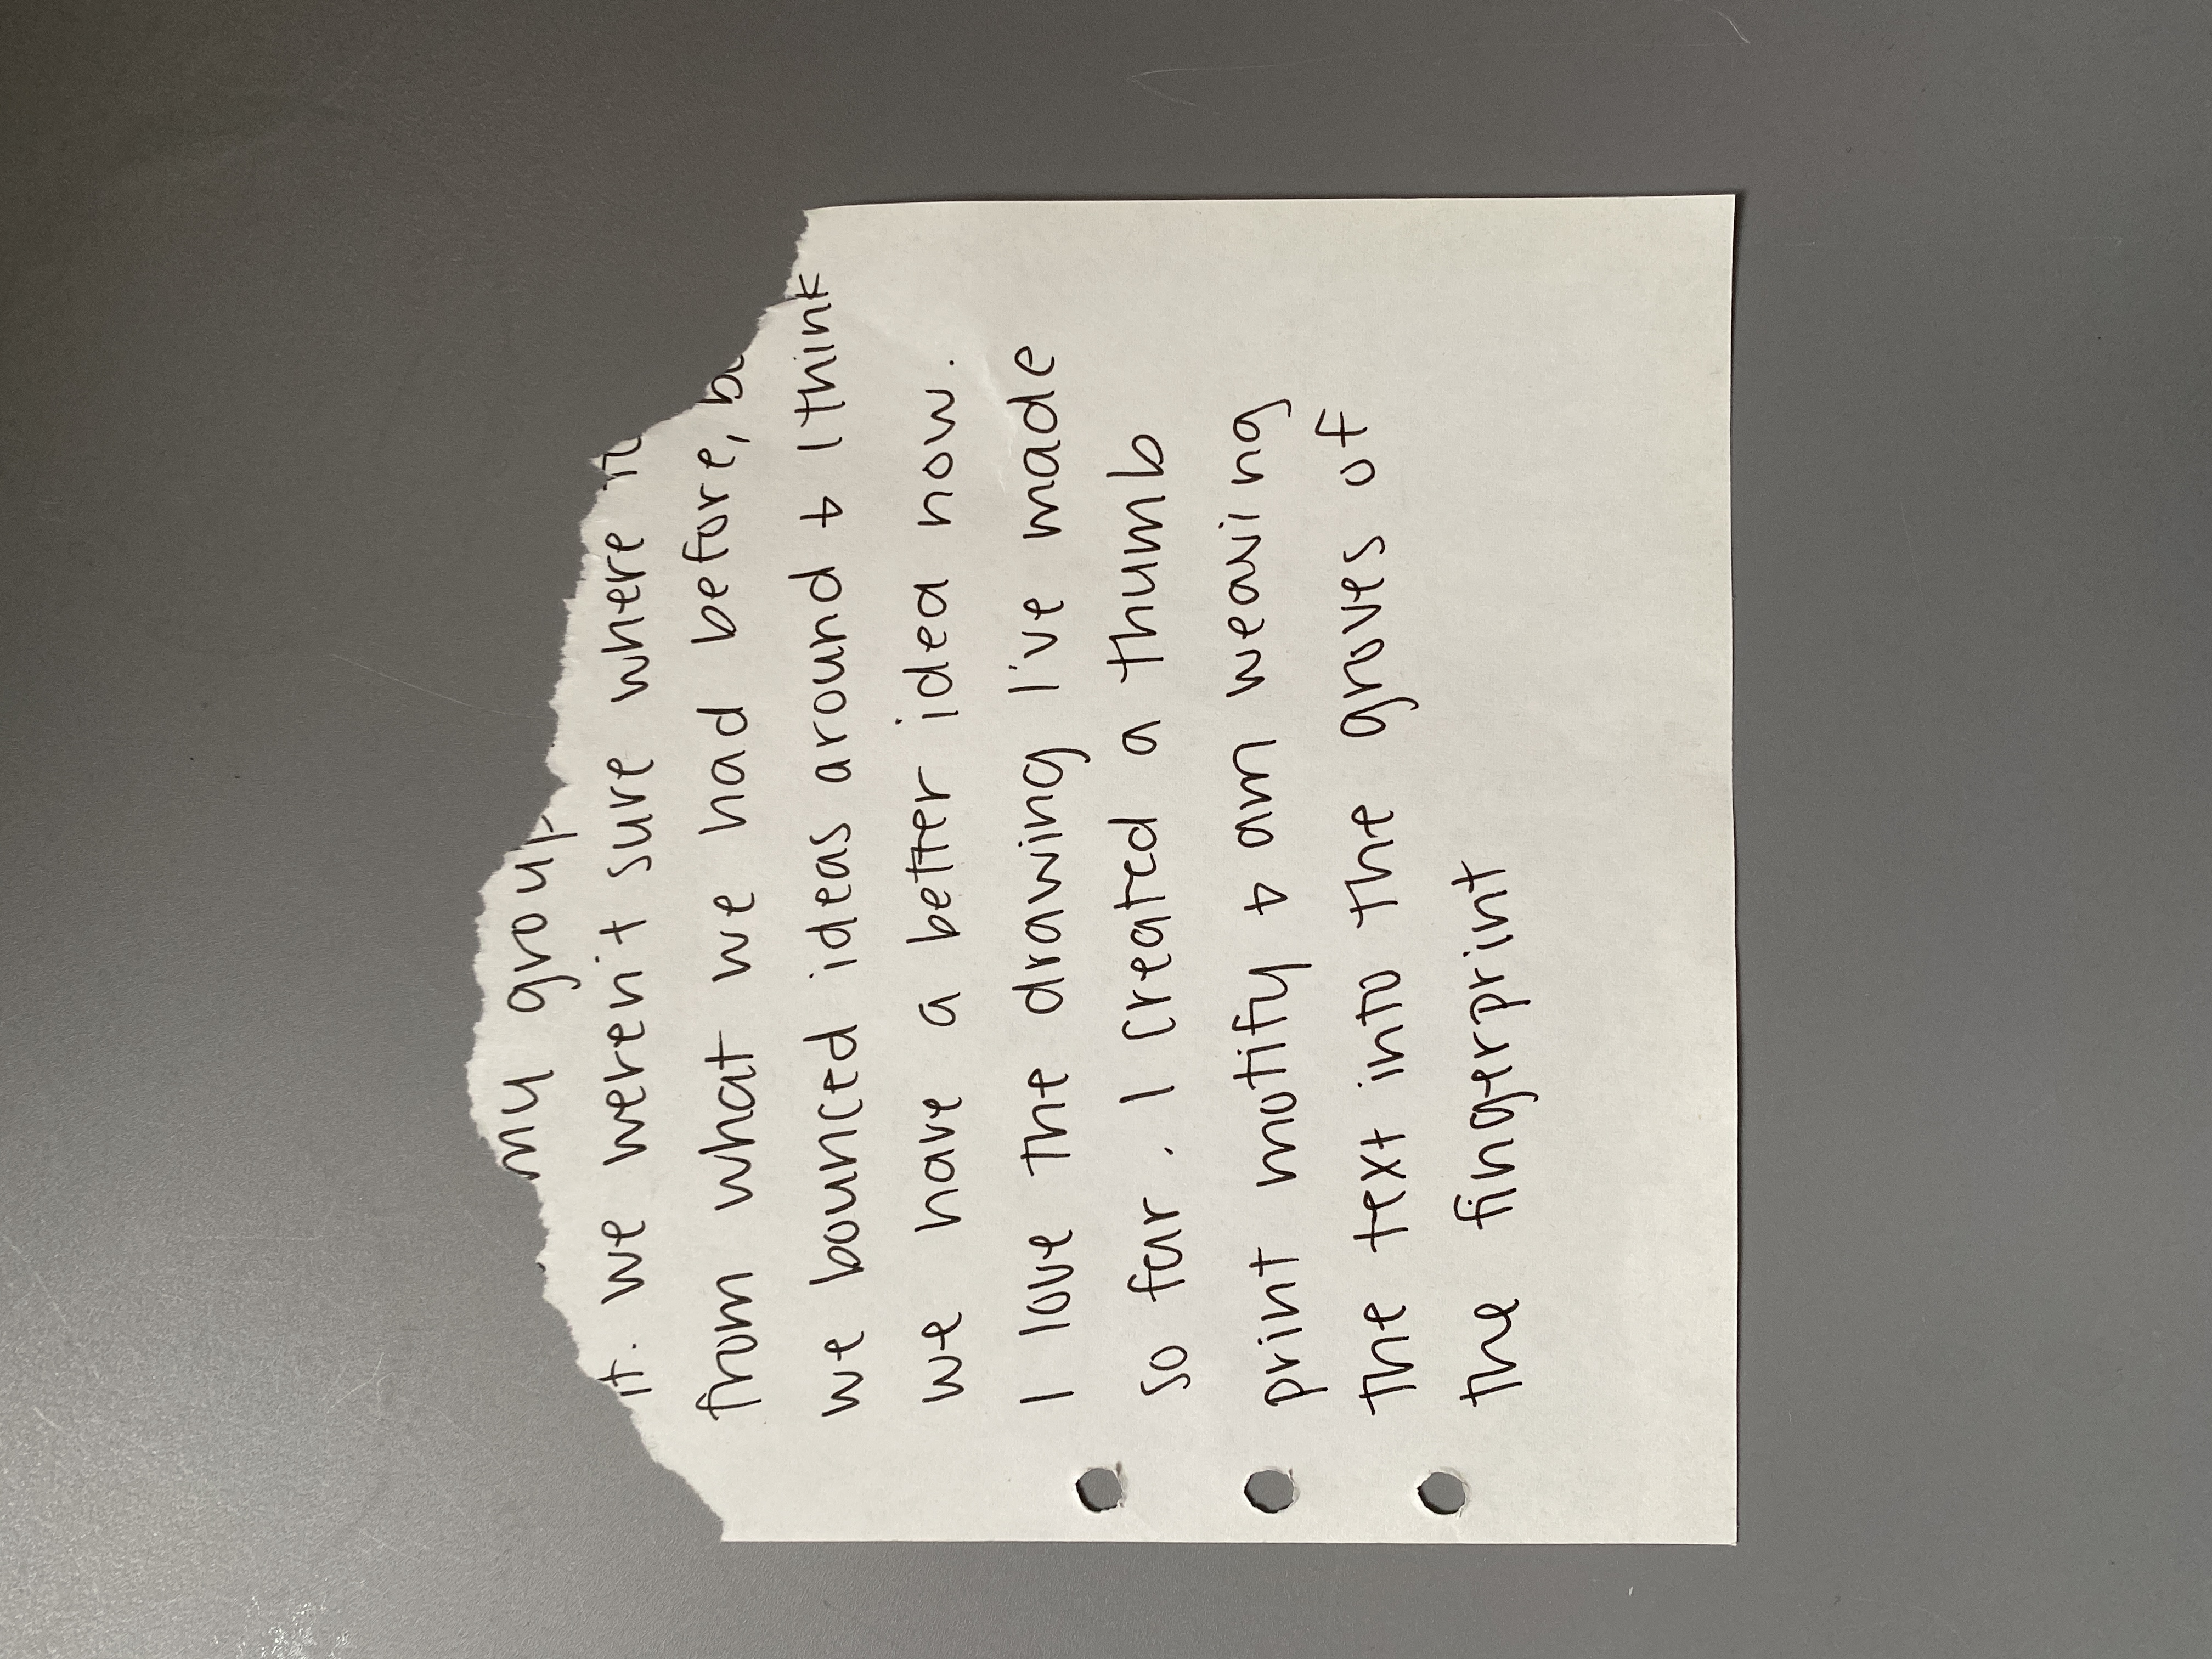 my group
it. we weren't sure where
from what we had before,
we bounced ideas around & I think
we have a better idea now.
I love the drawing I've made
so far. I created a thumb
print motify & am weaving
the text into the groves of
the fingerprint